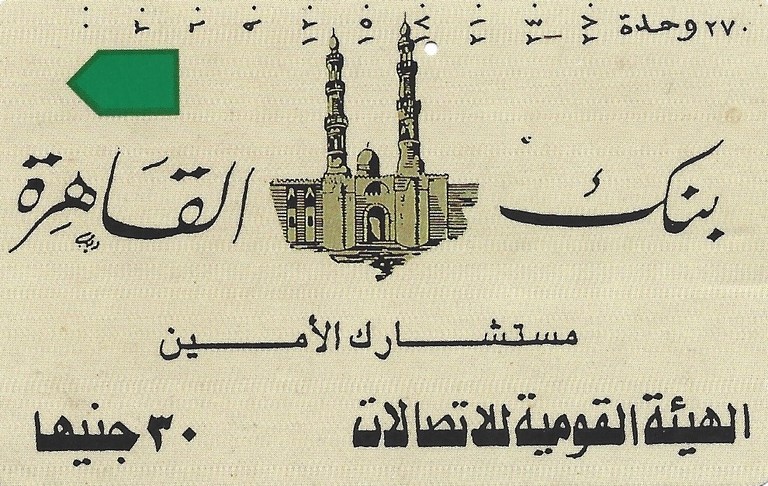 ٢٧٠ وحدة ٢٧٠ ٢٤٠ ٢١٠ ١٨٠ ١٥٠ ١٢٠ ٩٠ ٦٠ ٣٠ ٠
بنك القاهرة
مستشارك الأمين
الهيئة القومية للاتصالات ٣٠ جنيها